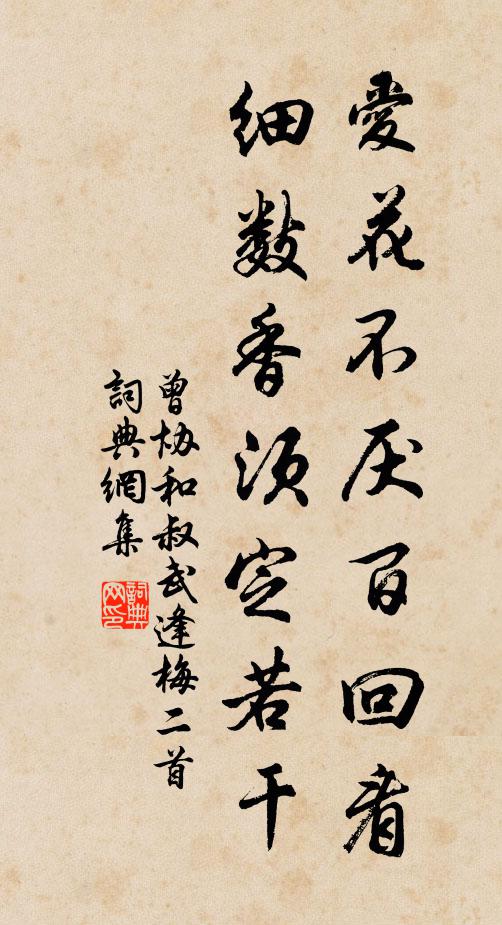 愛花不厌百回看
细数香须定若干
曾协和叔武逢梅二首
詞典網集
詞典网印